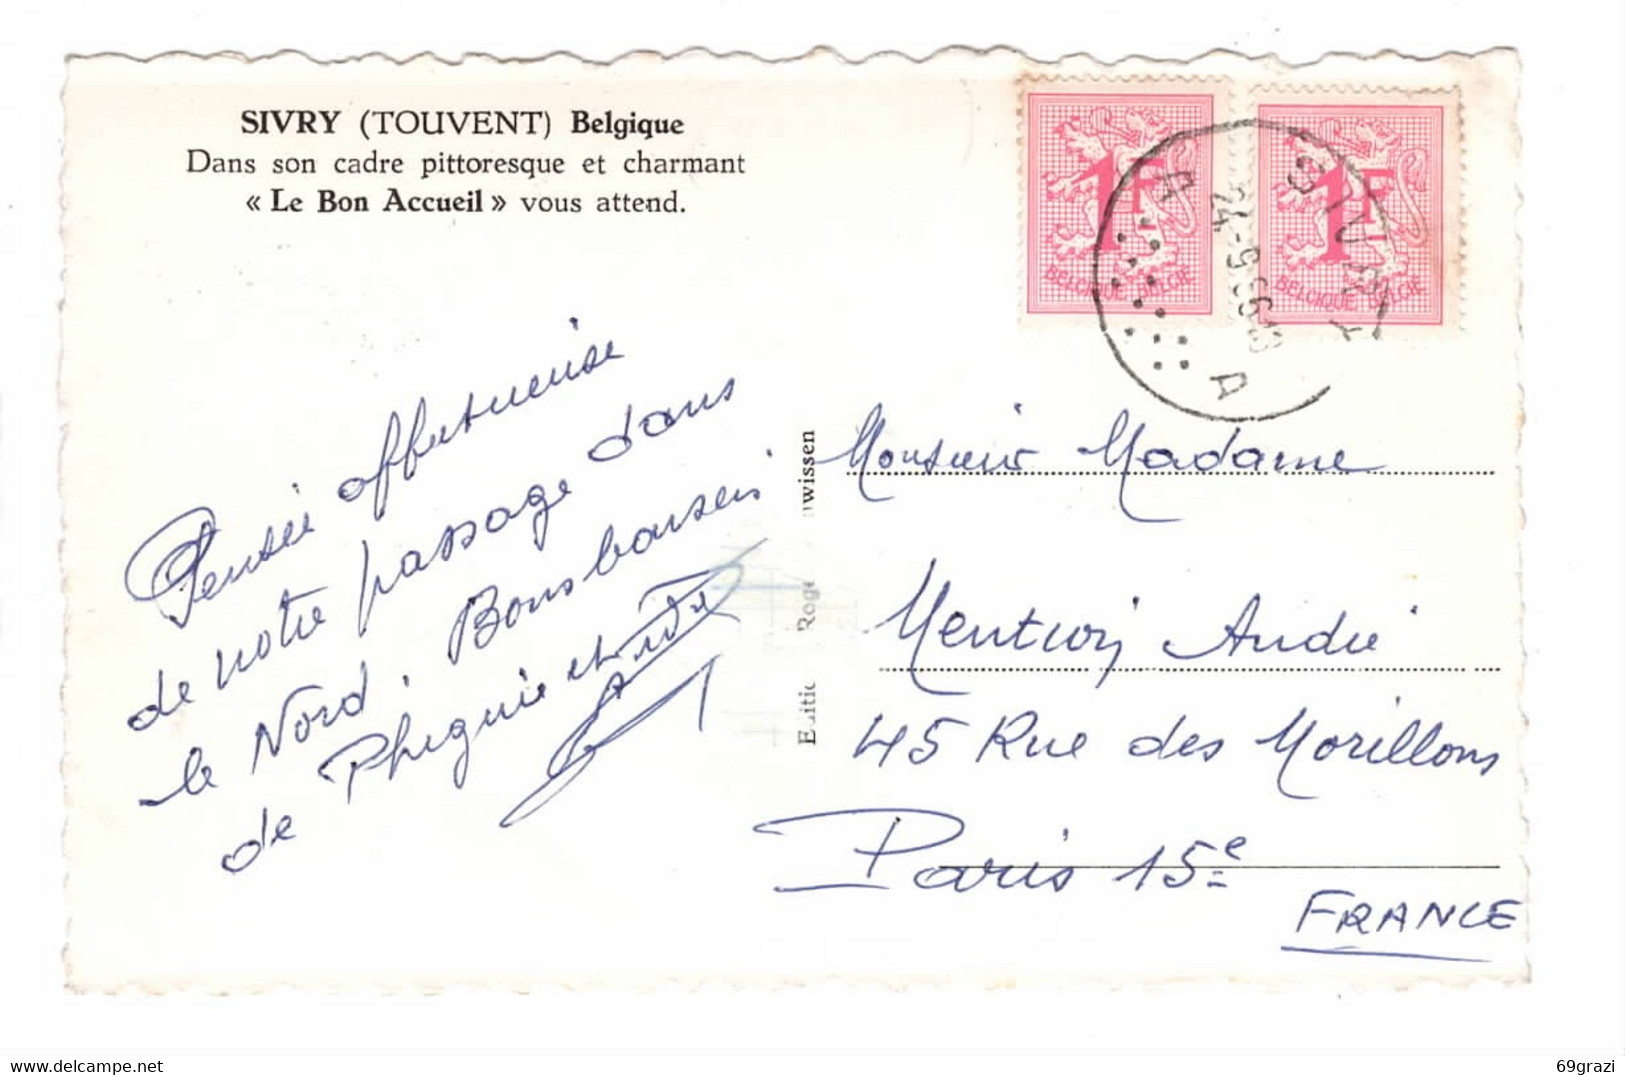 SIVRY (TOUVENT) Belgique
Dans son cadre pittoresque et charmant
« Le Bon Accueil » vous attend.
1F
BELGIQUE BELGIE
1F
BELGIQUE BELGIE
SIVRY
A A
24-5
Pensée affectueuse
de notre passage dans
le Nord. Bons baisers
de
et
Monsieur Madame
André
45 Rue des Morillons
Paris 15e
FRANCE
wissen
www.delcampe.net
69grazi